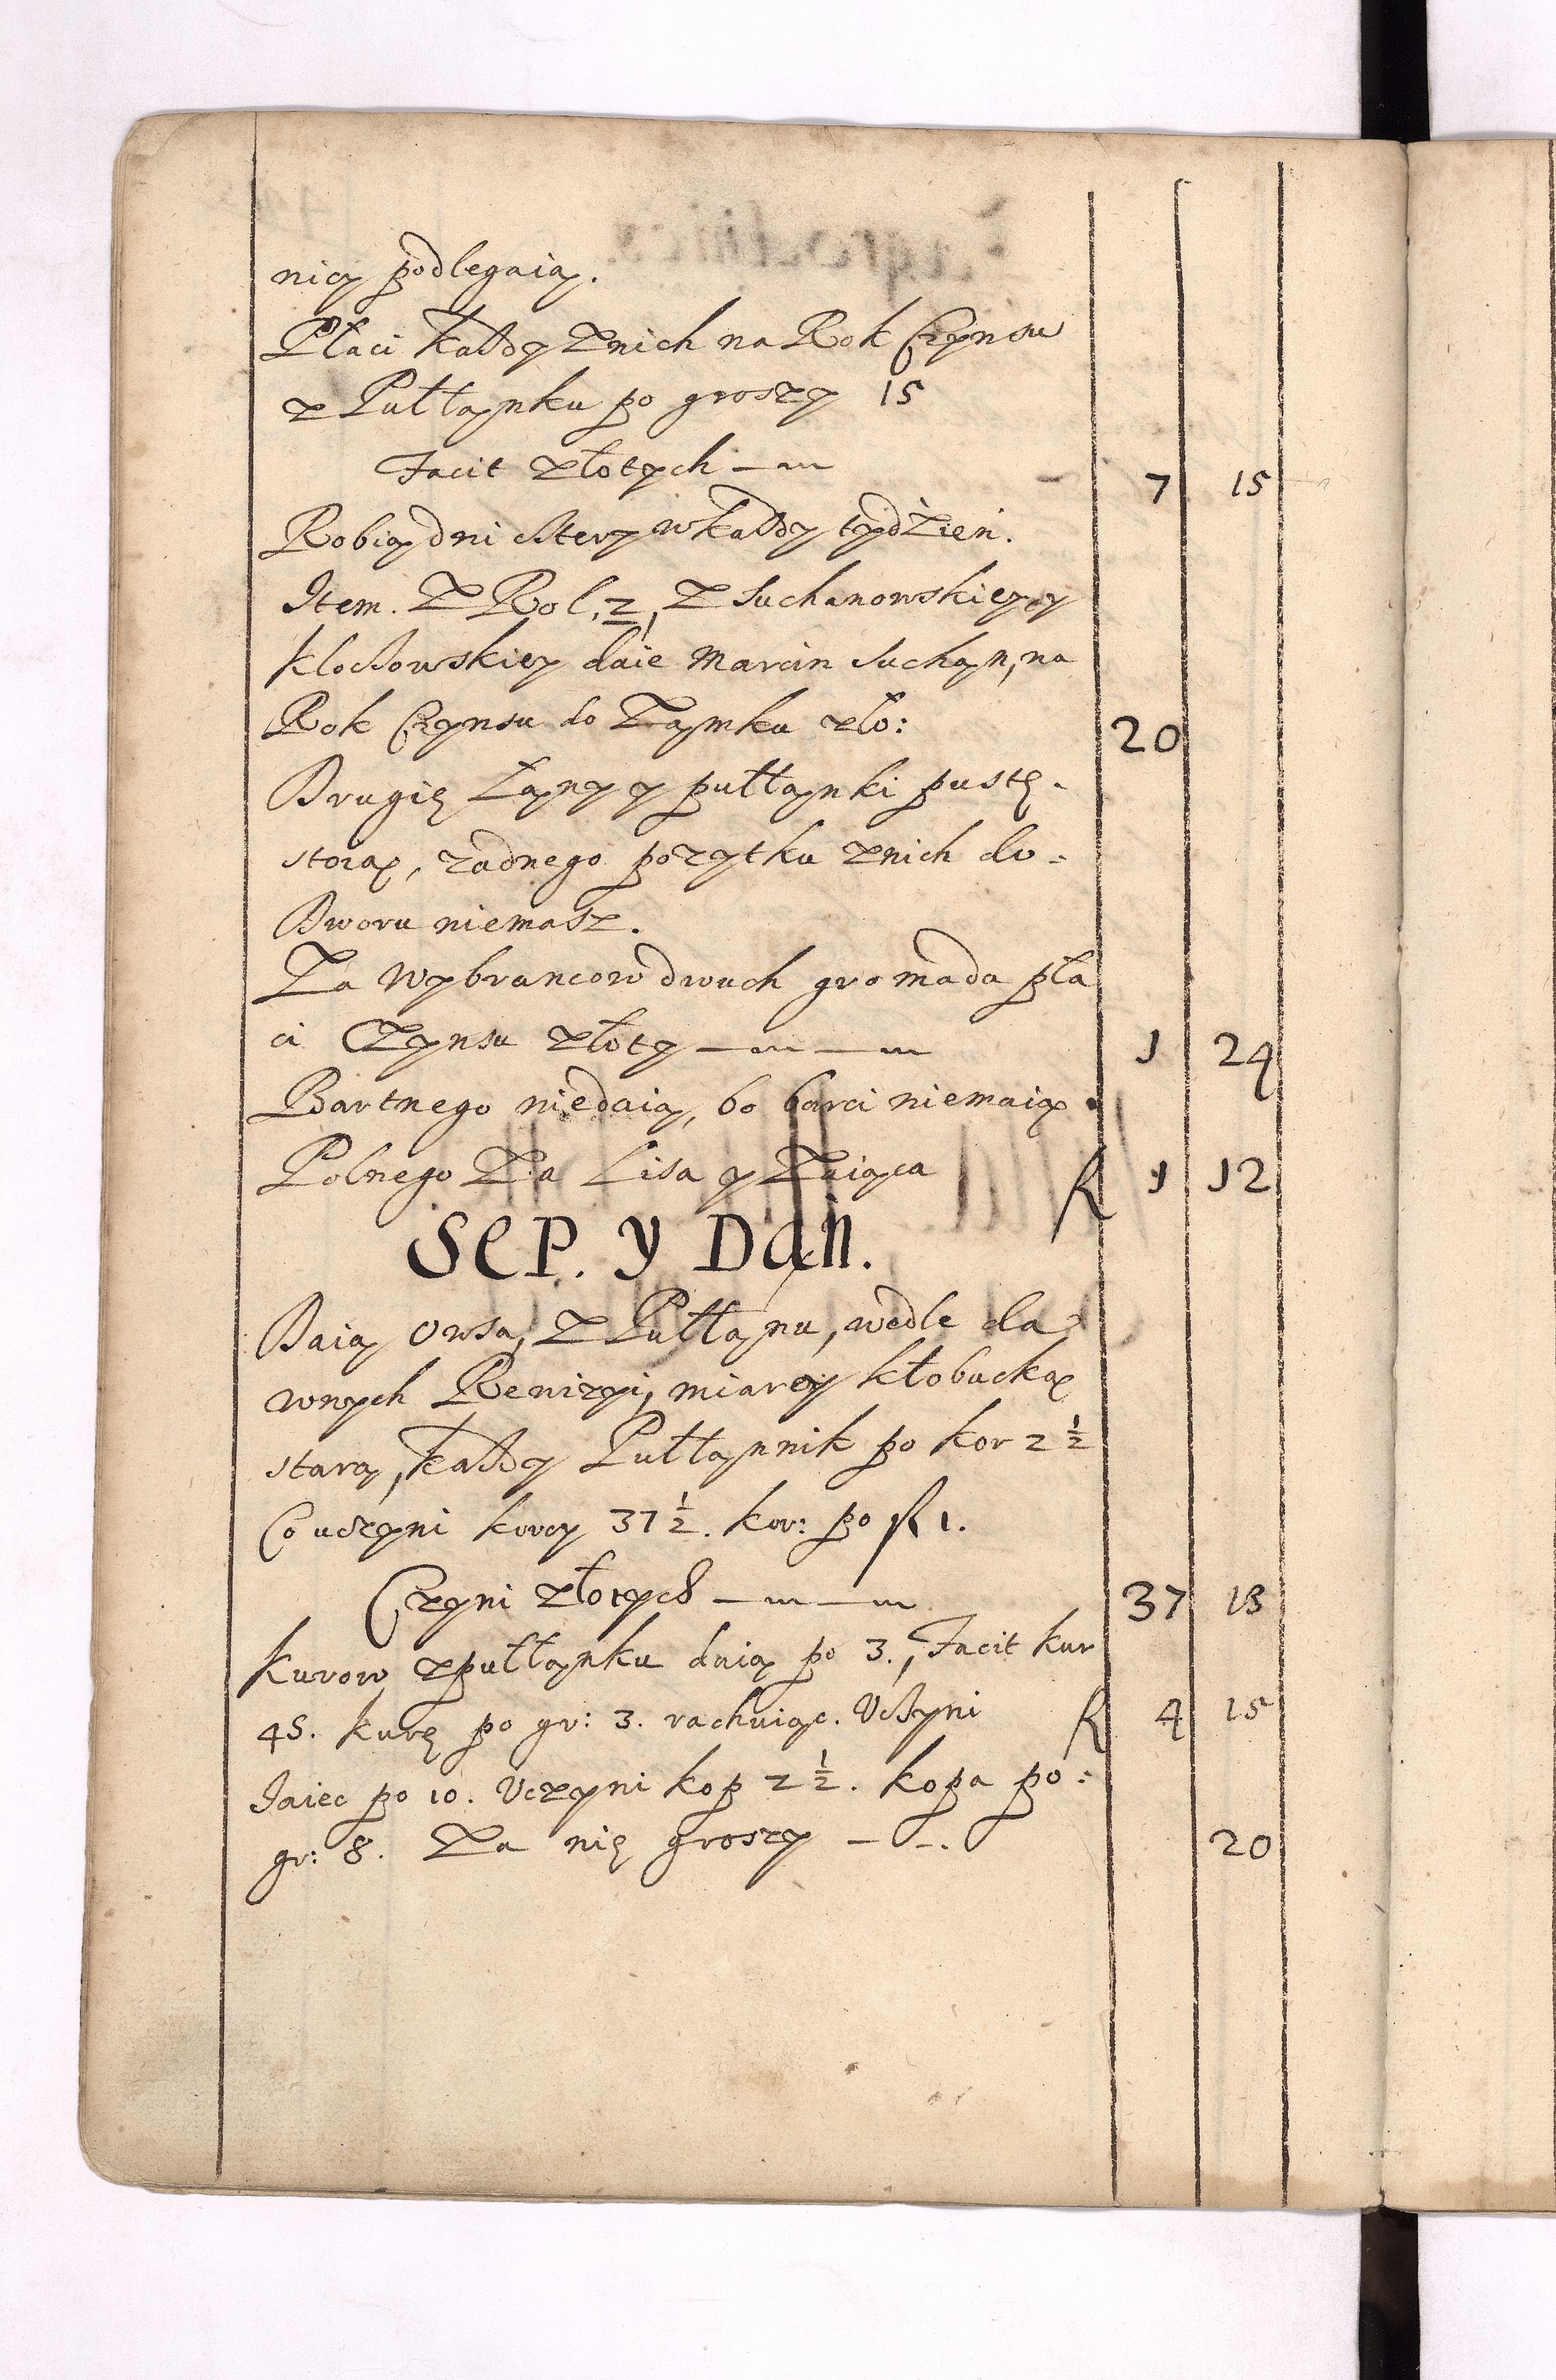 nicy podlegaią.
Płaci każdy z nich na Rok Czynsu
z Pułłanku po groszy 15
Facit złotych — 7 15
Robią dni cztery w każdy tydzień.
Item. Z Rol, 2, Z Suchanowskiey y
Kloczowskiey daie Marcin Suchan, na
Rok Czynsu do Zamku zło: 20
Drugię Łany y pułłanki pustę
stoią, zadnego pozytku z nich do
Dworu niemasz.
Za Wybrancow dwuch gromada pła
ci Czynsu złoty — 1 24
Bartnego niedaią, bo barci niemaią
Polnego Za Lisa y Zaiąca fl 1 12
SEP. Y DAŃ.
Daią Owsa, Z Pułłanu, wedle da
wnych Rewizyi, miarą kłobucką
starą, każdy Pułłannik po kor 2 ½
Co uczyni korcy 37 ½. kor: po fl 1.
Czyni złotych — 37 15
Kurow z pułłanku daią po 3., Facit kur
45. Kurę po gr: 3. rachuiąc. Uczyni fl 4 15
Iaiec po 10. Uczyni kop 2 ½. kopa po:
gr: 8. Za nię groszy — 20